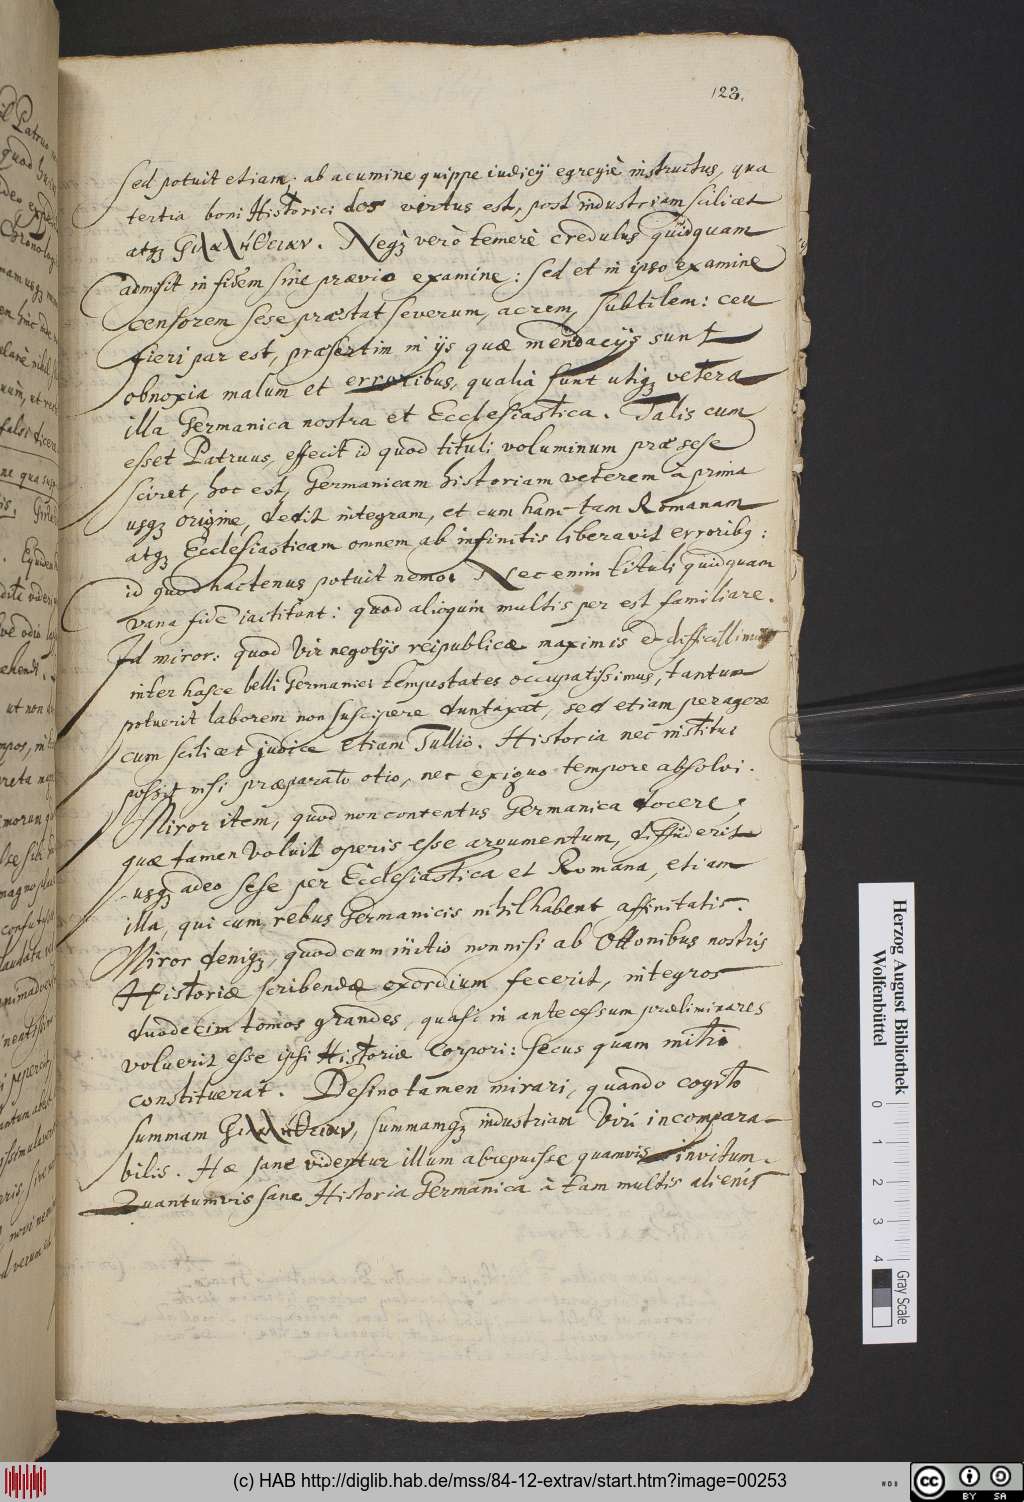 123.
Sed potuit etiam, ab acumine quippe iudicij egregiè instructus, quæ
tertia boni Historici dos virtus est, post industriam scilicet
atq; φιλαλήθειαν. Neq; verò temerè credulus quidquam
admisit in fidem sine prævio examine: sed et in ipso examine
censorem sese præstat severum, acrem, subtilem: ceu
fieri par est, præsertim in ijs quæ mendacijs sunt
obnoxia malum et erroribus, qualia sunt utiq; vetera
illa Germanica nostra et Ecclesiastica. Talis cum
esset Patruus, effecit id quod tituli voluminum præ sese
sciret, hoc est, Germanicam historiam veterem à prima
usq; origine, dedit integram, et cum hanc tam Romanam
atq; Ecclesiasticam omnem ab infinitis liberavit erroribq:
id quod hactenus potuit nemo. Nec enim tituli quidquam
vana fide iactitant: quod alioquin multis per est familiare.
Id miror: quod Vir negotijs reipublicæ maximis et difficillimis
inter hasce belli Germanici tempestates occupatissimus, tantum
potuerit laborem non suscipere duntaxat, sed etiam peragere
cum scilicet judice etiam Tullio. Historia nec institui
possit nisi præparato otio, nec exiguo tempore absolvi.
Miror item, quod non contentus Germanica docere,
quæ tamen voluit operis esse argumentum, diffuderit
usq; adeo sese per Ecclesiastica et Romana, etiam
illa, qui cum rebus Germanicis nihil habent affinitatis.
Miror deniq;, quod cum initio non nisi ab Ottonibus nostris
Historiæ scribendæ exordium fecerit, integros
duodecim tomos grandes, quasi in antecessum præliminares
voluerit esse ipsi Historiæ Corpori: secus quam initio
constituerat. Desino tamen mirari, quando cogito
summam φιλαλήθειαν, summamq; industriam Viri incompara-
bilis. Hæ sane videntur illum abrepuisse quamvis invitum.
Quantumvis sane Historia Germanica à tam multis alienis
Herzog August Bibliothek
Wolfenbüttel
0 1 2 3 4
Gray Scale
(c) HAB http://diglib.hab.de/mss/84-12-extrav/start.htm?image=00253
cc BY SA